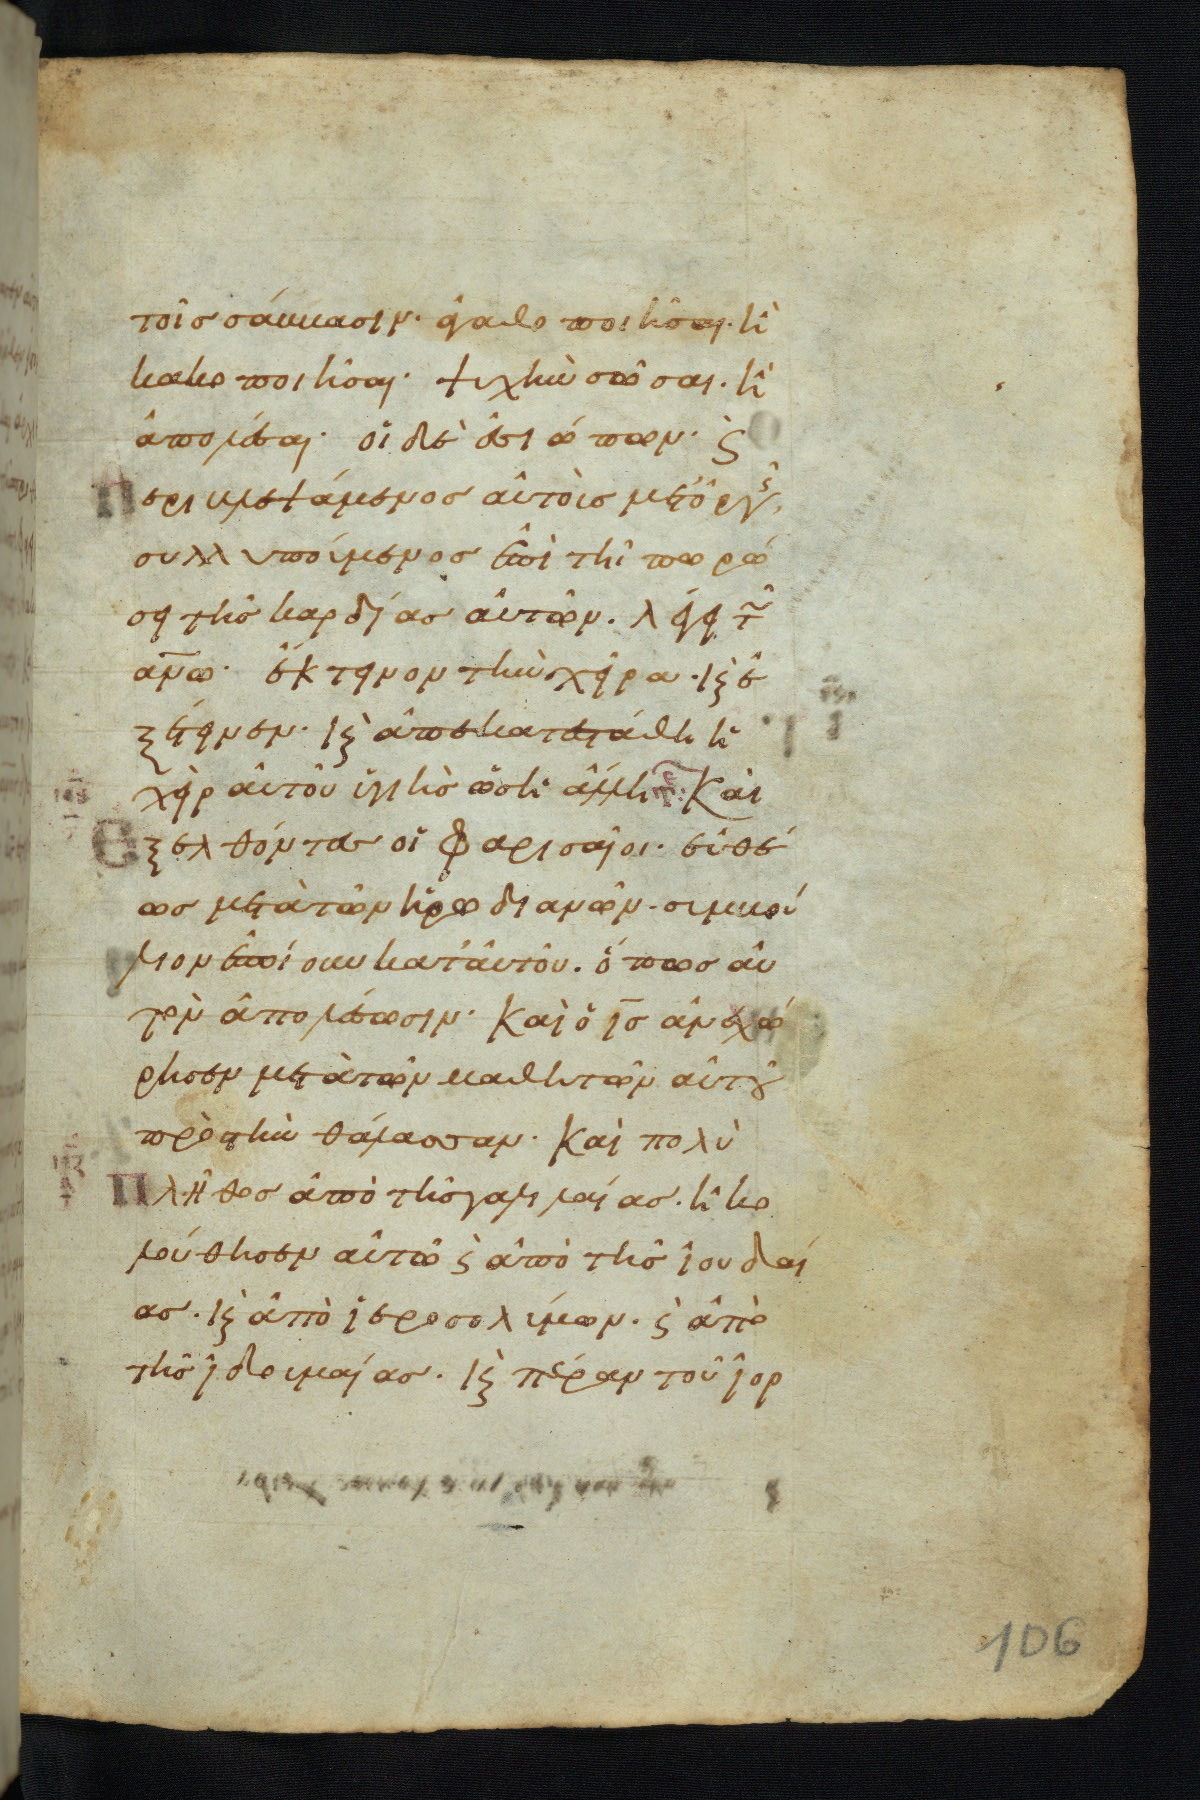 τοῖς σάββασιν· ἀγαθοποιῆσαι· ἢ
κακοποιῆσαι· ψυχὴν σῶσαι· ἢ
ἀπολέσαι· οἱ δὲ ἐσιώπων· ϛ
Περιβλεψάμενος αὐτοὺς μετ' ὀργῆς
συλλυπούμενος ἐπὶ τῆ πωρώ
σει τῆς καρδίας αὐτῶν· λέγει τῶ
ἀν̅ω· ἔκτεινον τὴν χεῖρα· κ̀ ἐ
ξέτεινεν· κ̀ ἀποκατεστάθη ἡ
χεὶρ αὐτοῦ ὑγιὴς ὡς ἡ ἄλλη Καὶ
Ἐξελθόντες οἱ Φαρισαῖοι· εὐθέ
ως μετὰ τῶν ἡρωδιανῶν· συμβού
λιον ἐποίουν κατ' αὐτοῦ· ὅπως αὐ
τὸν ἀπολέσωσιν· Καὶ ὁ ι̅ς ἀνεχώ
ρησεν μετὰ τῶν μαθητῶν αὐτοῦ
πρὸς τὴν θάλασσαν· Καὶ πολὺ
Πλῆθος ἀπὸ τῆς γαλιλαίας· ἠκο
λούθησεν αὐτῶ ϛ̀ ἀπὸ τῆς ἰουδαί
ας· κ̀ ἀπὸ ἱεροσολύμων· ϛ̀ ἀπὸ
τῆς ἰδουμαίας· κ̀ πέραν τοῦ ἰορ
106